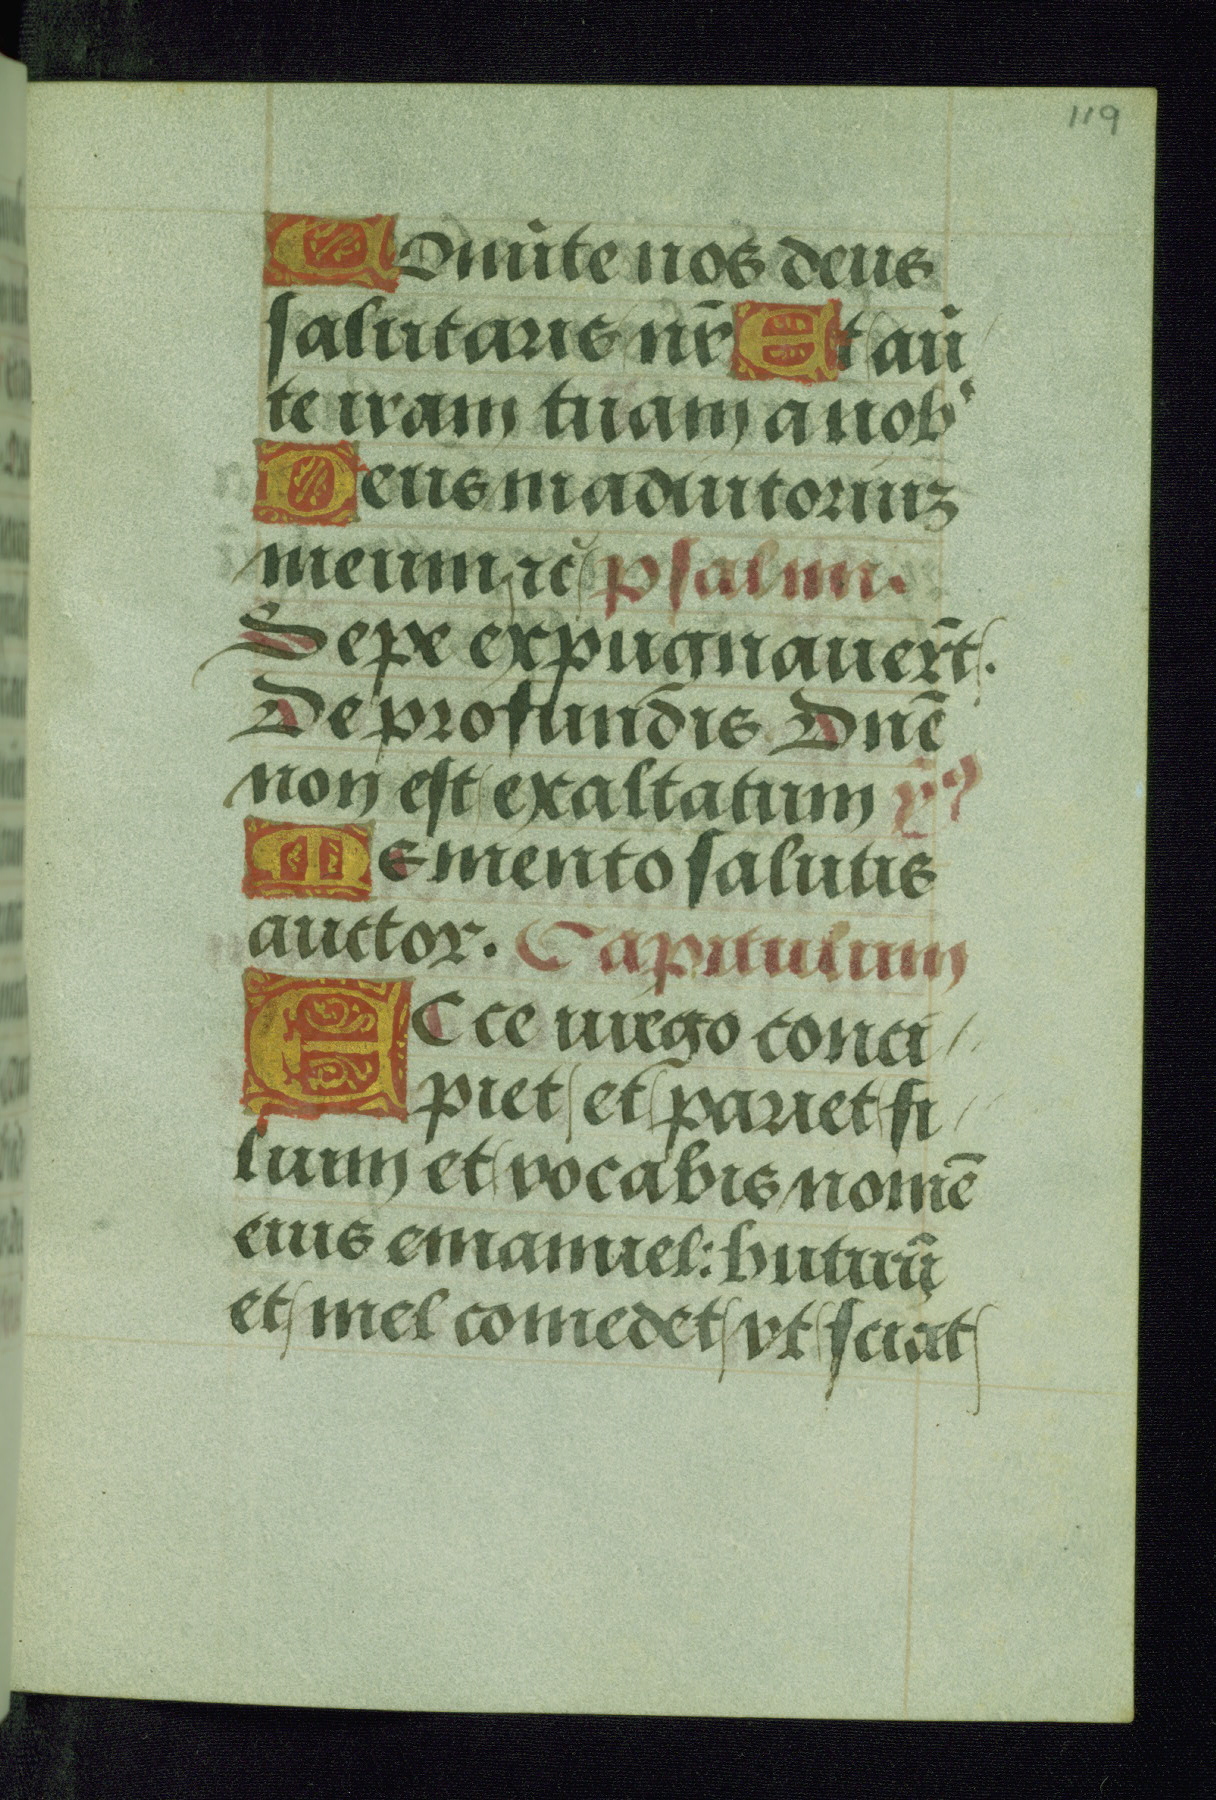 119
COnũte nos deus
salutaris nr̃ Et aũ
te iram tuam a nob'
Deus in adiutoriuz
meum, ⁊c̃ psalm.
Sepe expugnauer̃t.
De profundis Dnẽ
non est exaltatum ẏꝰ
Memento salutis
auctor. Capitulum
ECce uirgo conci
piet et pariet fi
lium et vocabis nomẽ
eius emanuel: butirũ
et mel comedet vt sciat